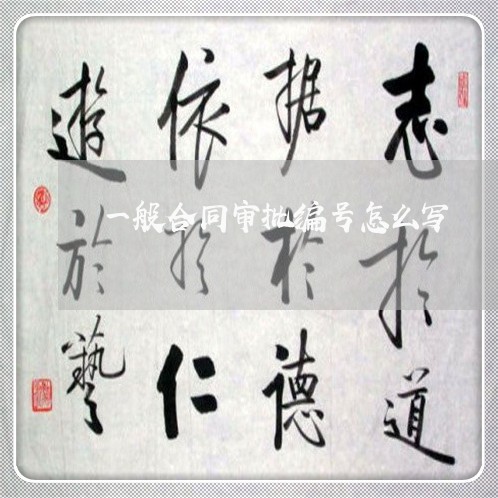 志於道
据於德
依於仁
遊於藝
一般合同审批编号怎么写